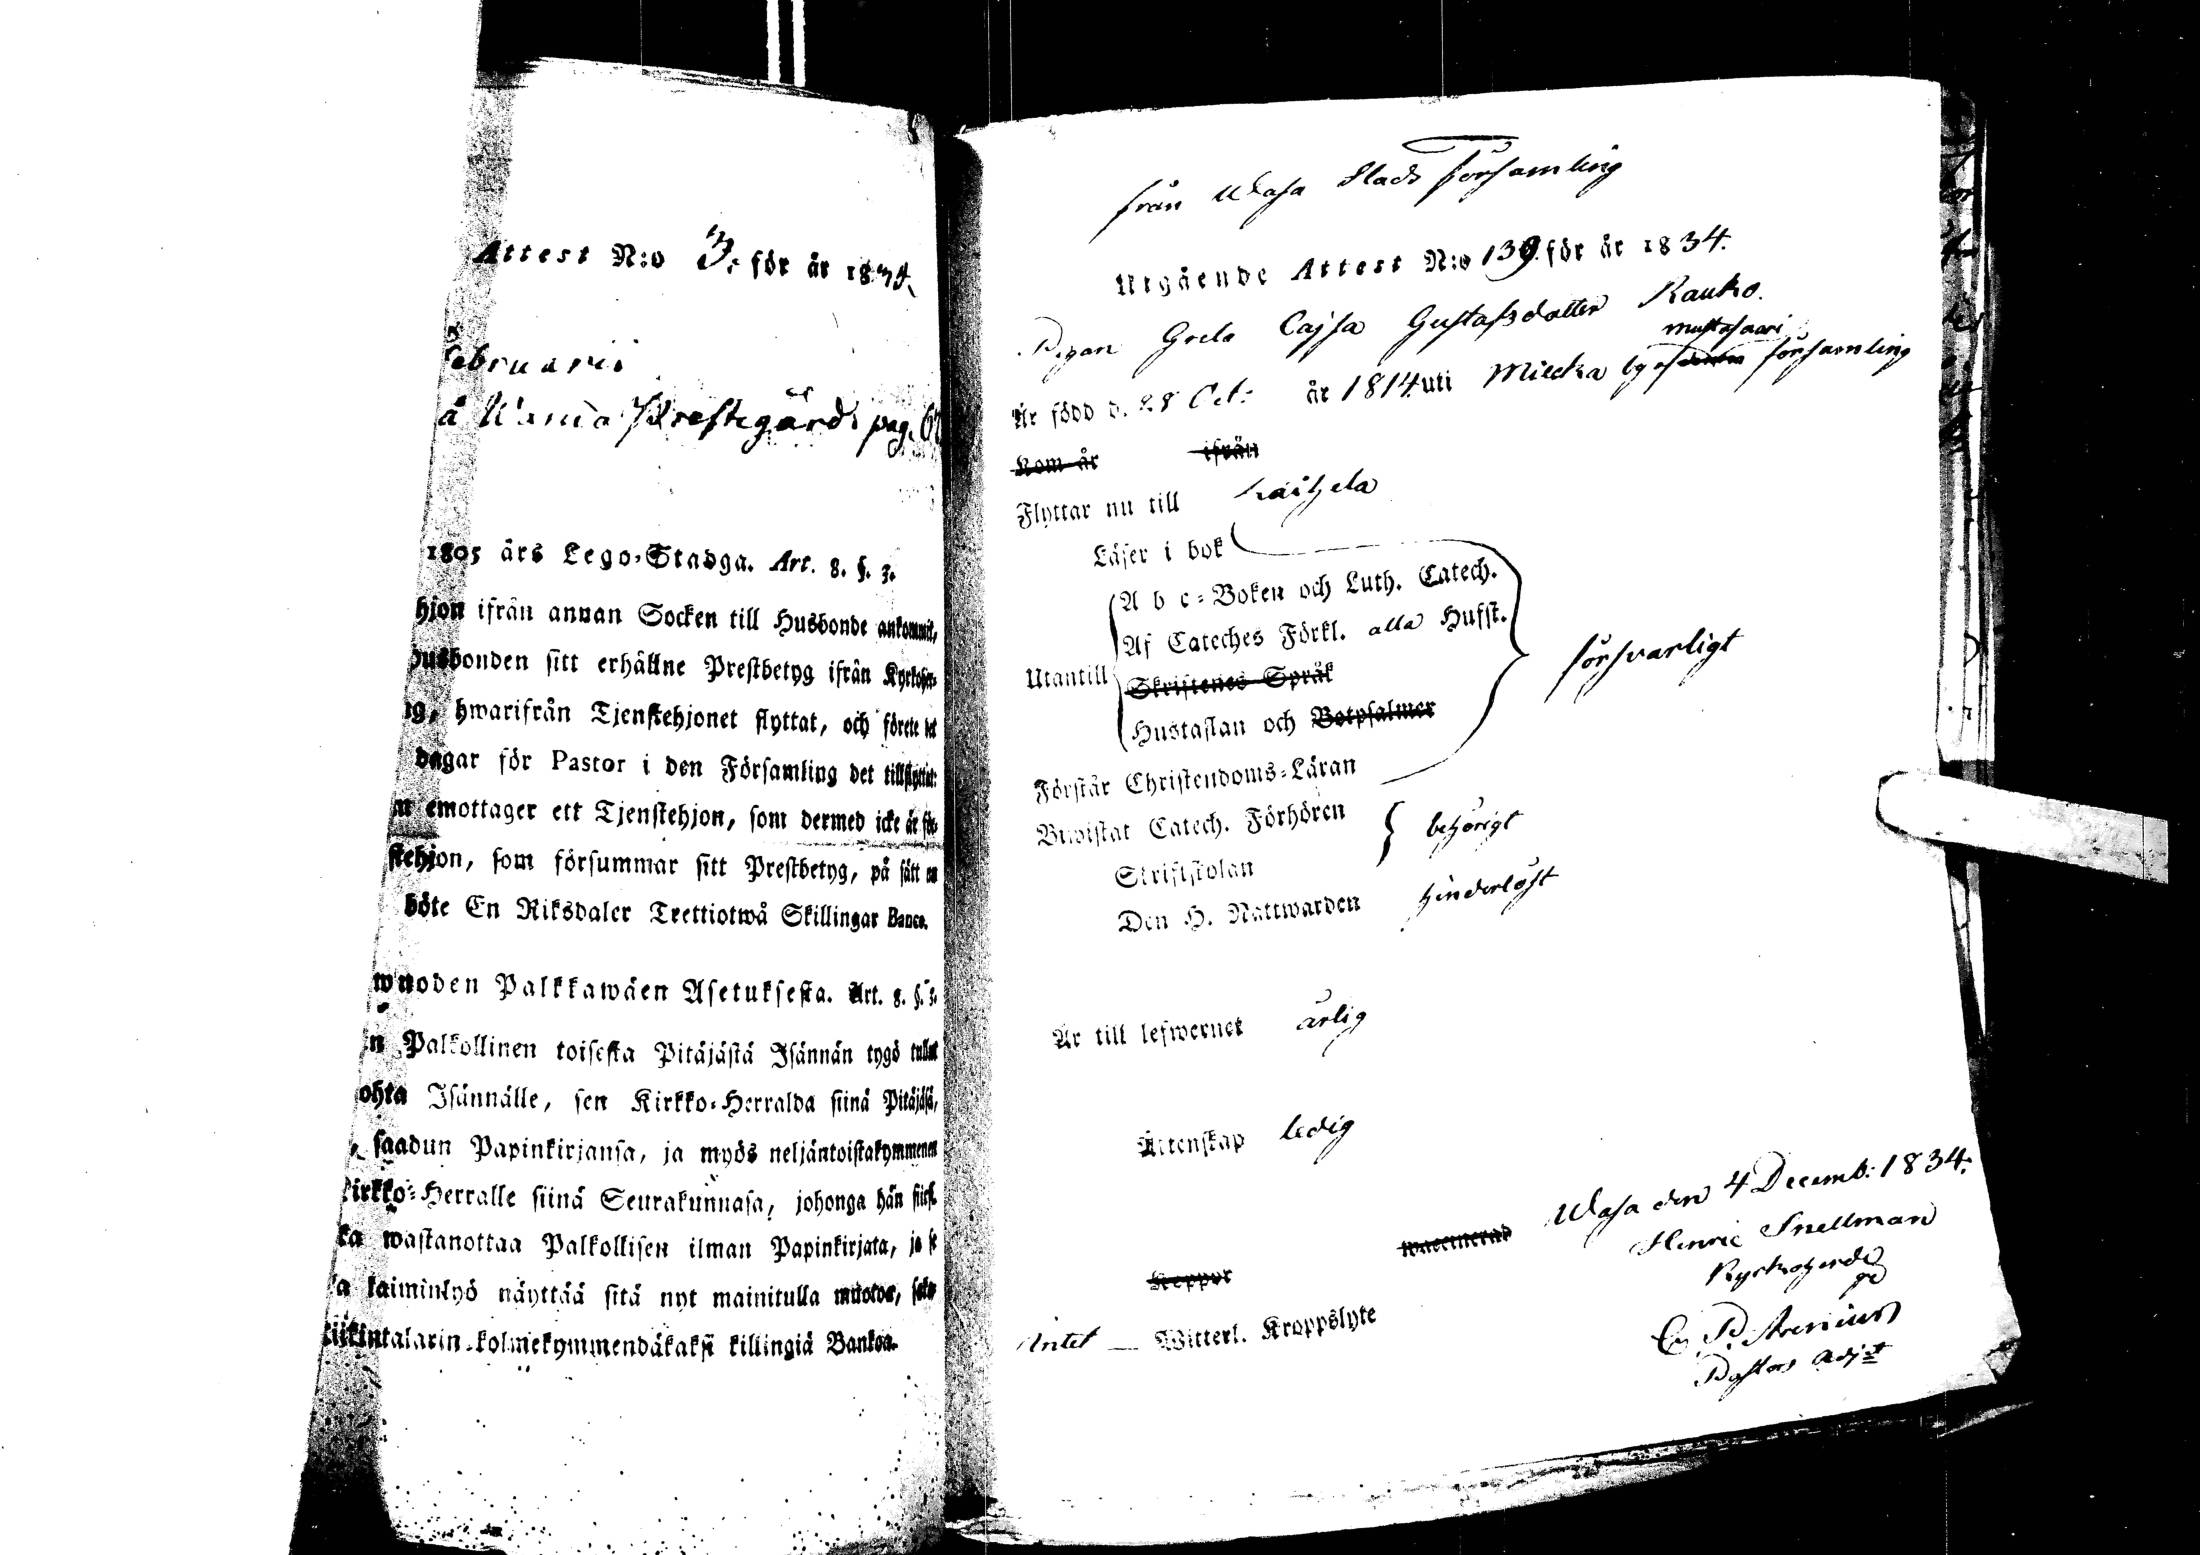 Attest N:o 3. för år 1834.
ebruarii
å Prestegård pag. 6
1805 års Lego-Stadga. Art. 8. §. 3.
hjon ifrån annan Socken till Husbonde ankommit,
husbonden sitt erhållne Prestbetyg ifrån
ng, hwarifrån Tjenstehjonet flyttat, och förete det
dagar för Pastor i den Församling det
m emottager ett Tjenstehjon, som dermed icke är
stehjon, som försummar sitt Prestbetyg, på sätt
böte En Riksdaler Trettiotwå Skillingar Banco.
wuoden Palkkawäen Asetuksesta. Art. 8. §. 3.
n Palkollinen toisesta Pitäjästä Isännän tygö tullut
ohta Isännälle, sen Kirkko-Herralda siinä Pitäjäsä,
saadun Papinkirjansa, ja myös neljäntoistakymmenen
Kirkko-Herralle siinä Seurakunnasa, johonga hän
ka wastanottaa Palkollisen ilman Papinkirjata, ja se
a laiminlyö näyttää sitä nyt mainitulla muotoa,
kolmekymmendäkaksi killingiä Bankoa.
från Wasa Stads Församling
Utgående Attest N:o 139. för år 1834.
Pigan Greta Cajsa Gustafsdotter Rauko.
mustasaari
Är född d. 28 Oct: år 1814. uti Miecka by af församling
Kom år ifrån
Flyttar nu till
Läser i bok
A b c-Boken och Luth. Catech.
Af Cateches Förkl. alla Hufst.
Utantill försvarligt
Skriftenes Språk
Hustaflan och Botpsalmer
Förstår Christendoms-Läran
Biwistat Catech. Förhören behörigt
Skriftskolan
Den H. Nattwarden hinderlöst
Är till lefwernet ärlig
Ächtenskap ledig
Wasa den 4 Decemb: 1834.
waccinerad Henric Snellman
Kyrkoherde
Koppor
Intet — Witterl. Kroppslyte
Pastors Adjt